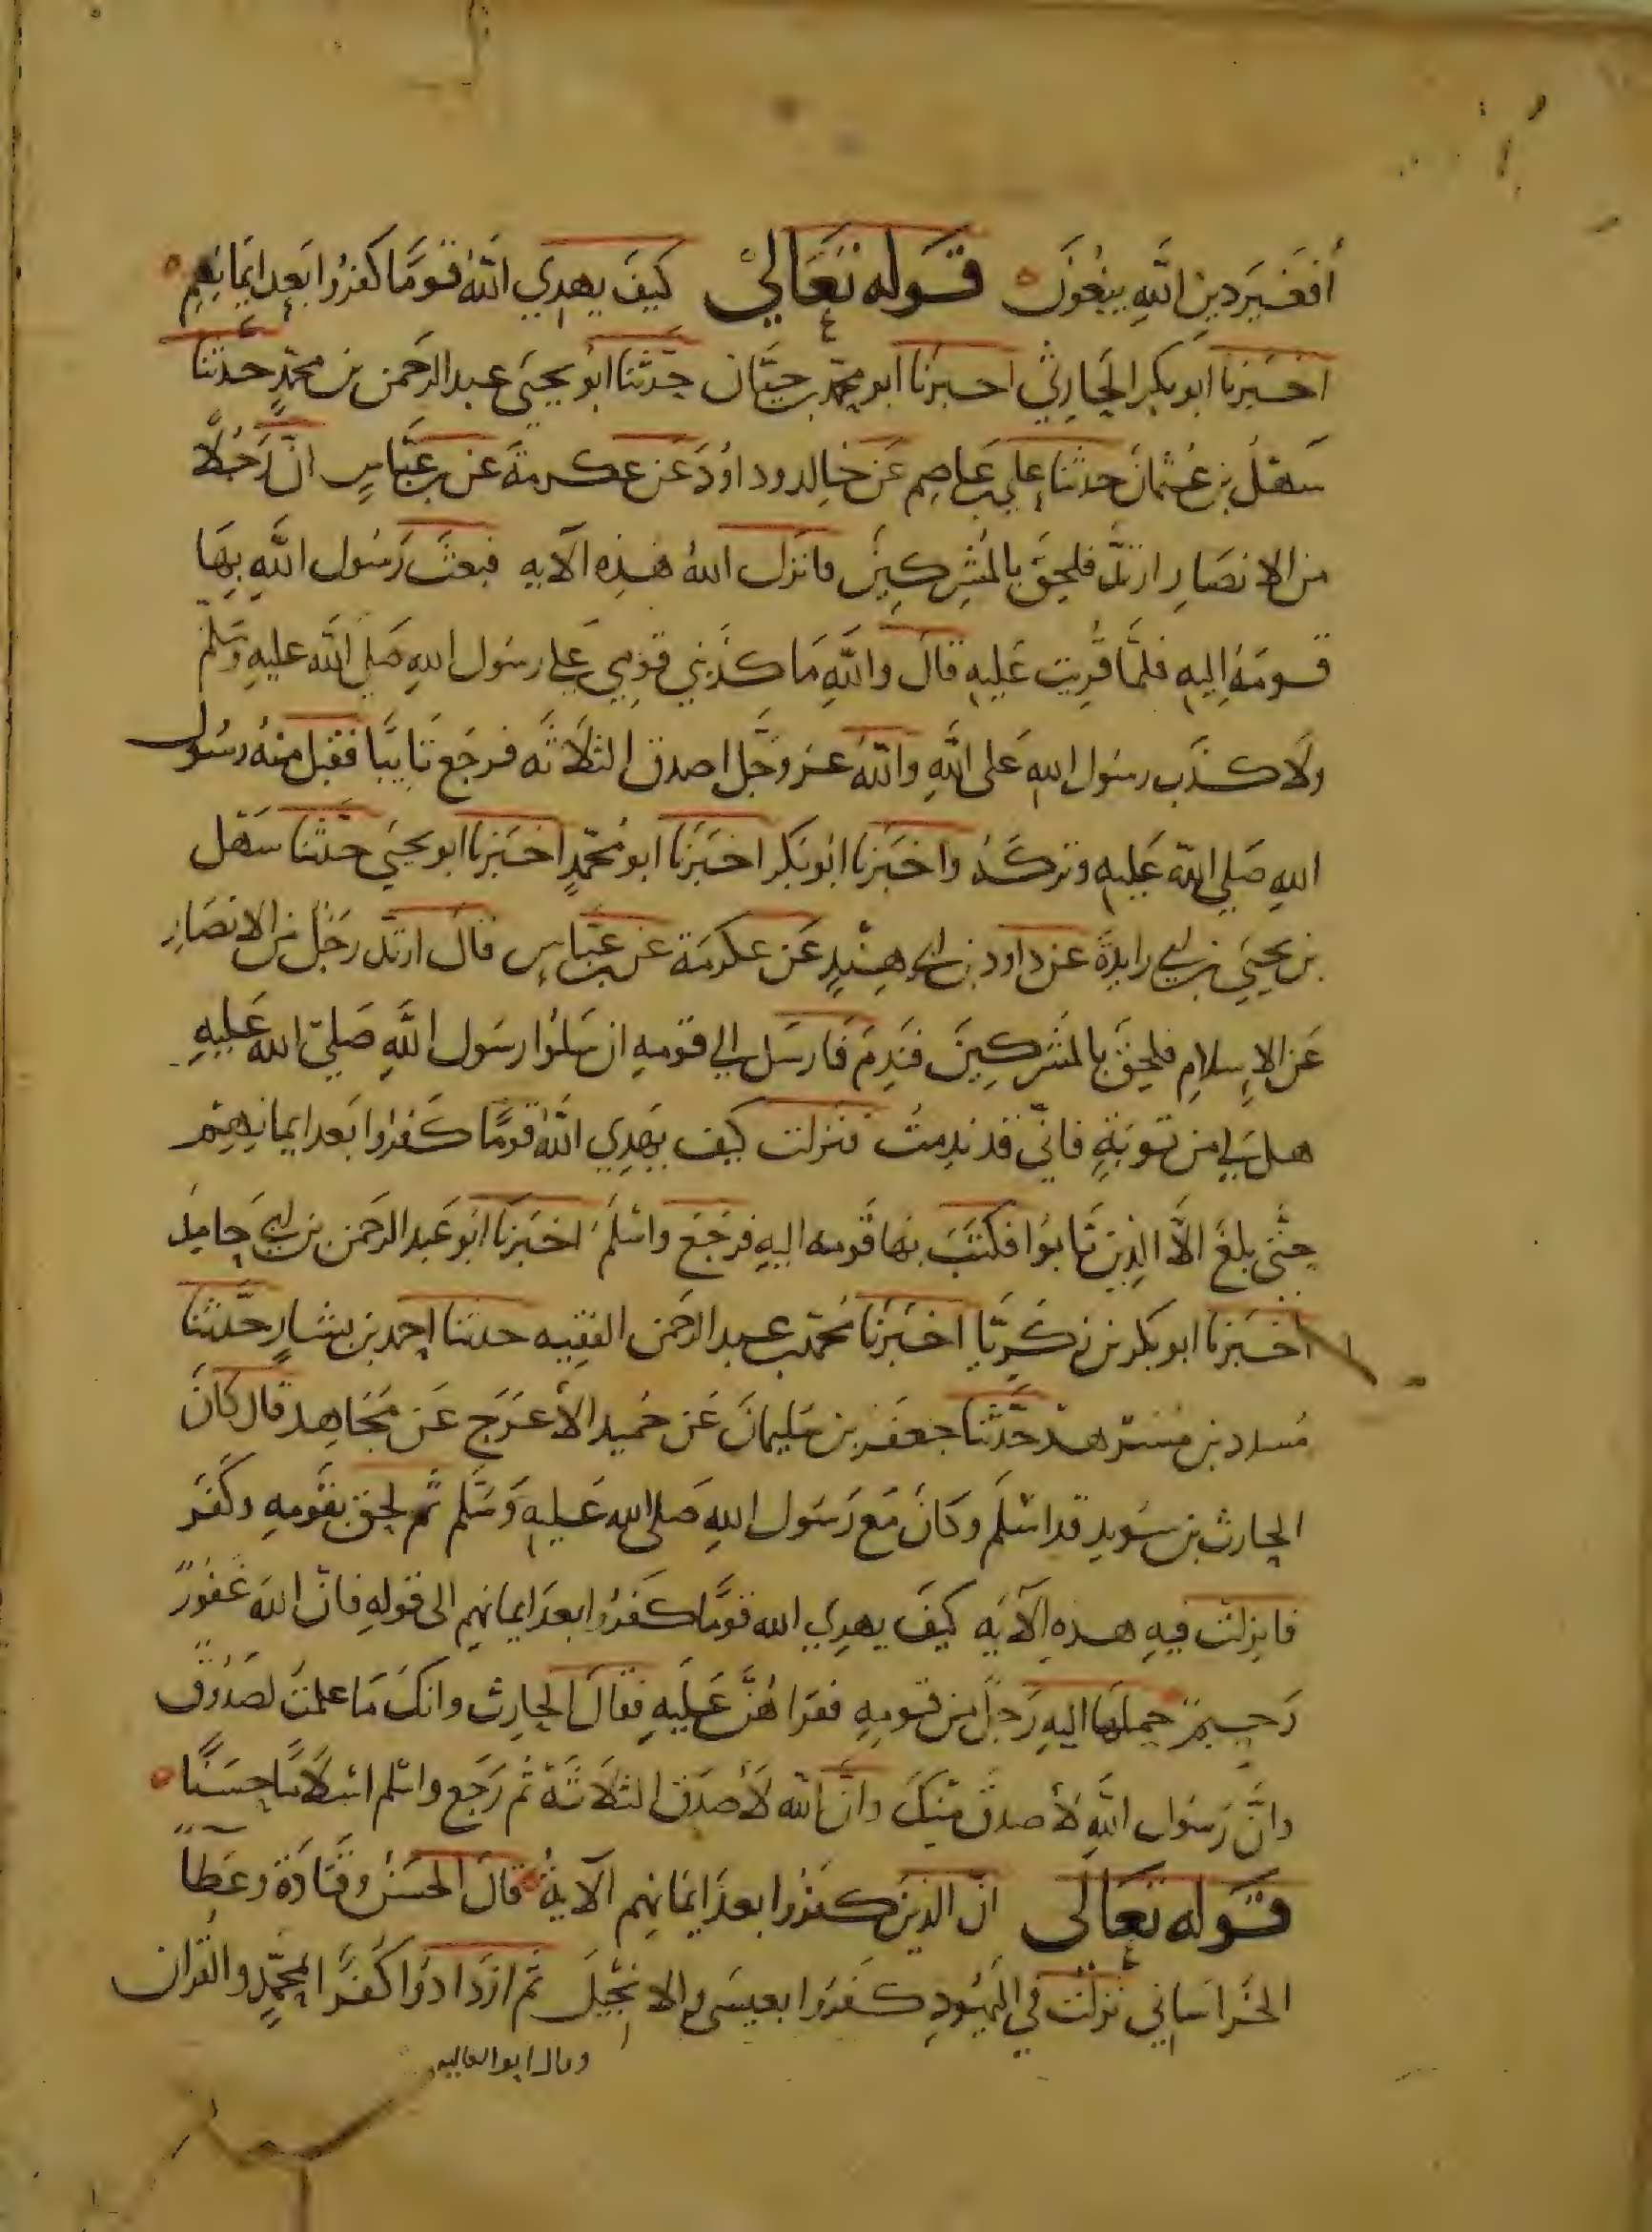 أفغير دين الله يبغون قوله تعالى كيف يهدي الله قوما كفروا بعد ايمانهم
اخبرنا ابو بكر الحارثي اخبرنا ابو محمد بن حيان حدثنا ابو يحيى عبد الرحمن بن محمد حدثنا
سهل بن عثمان حدثنا علي بن عاصم عن خالد وداود عن عكرمة عن بن عباس ان رجلا
من الانصار ارتد فلحق بالمشركين فانزل الله هذه الآيه فبعث رسول الله بها
قومه اليه فلما قريت عليه قال والله ما كذبني قومي على رسول الله صلى الله عليه وسلم
ولا كذب رسول الله على الله والله عز وجل اصدق الثلاثه فرجع تايبا فقبل منه رسول
الله صلى الله عليه وتركه واخبرنا ابو بكر اخبرنا ابو محمد اخبرنا ابو يحيى حدثنا سهل
بن يحيى بن ابي زايدة عن داود بن ابي هند عن عكرمة عن بن عباس قال ارتد رجل من الانصار
عن الاسلام فلحق بالمشركين فندم فارسل الى قومه ان سلوا رسول الله صلى الله عليه
هل لي من توبة فاني قد ندمت فنزلت كيف يهدي الله قوما كفروا بعد ايمانهم
حتى بلغ الا الذين تابوا فكتب بها قومه اليه فرجع واسلم اخبرنا ابو عبد الرحمن بن ابي حامد
اخبرنا ابو بكر بن زكريا اخبرنا محمد بن عبد الرحمن الفقيه حدثنا احمد بن بشار حدثنا
مسدد بن مسرهد حدثنا جعفر بن سليمان عن حميد الأعرج عن مجاهد قال كان
الحارث بن سويد قد اسلم وكان مع رسول الله صلى الله عليه وسلم ثم لحق بقومه وكفر
فانزلت فيه هذه الآيه كيف يهدي الله قوما كفروا بعد ايمانهم الى قوله فان الله غفور
رحيم حملها اليه رجل من قومه فقراهن عليه فقال الحارث وانك ما علمت لصدوق
وان رسول الله لأصدق منك وان الله لأصدق الثلاثة ثم رجع واسلم اسلاما حسنا
قوله تعالى ان الذين كفروا بعد ايمانهم الآية قال الحسن وقتادة وعطآ
الخراساني نزلت في اليهود كفروا بعيسى والانجيل ثم ازدادوا كفرا بمحمد والقران
وقال ابو العاليه